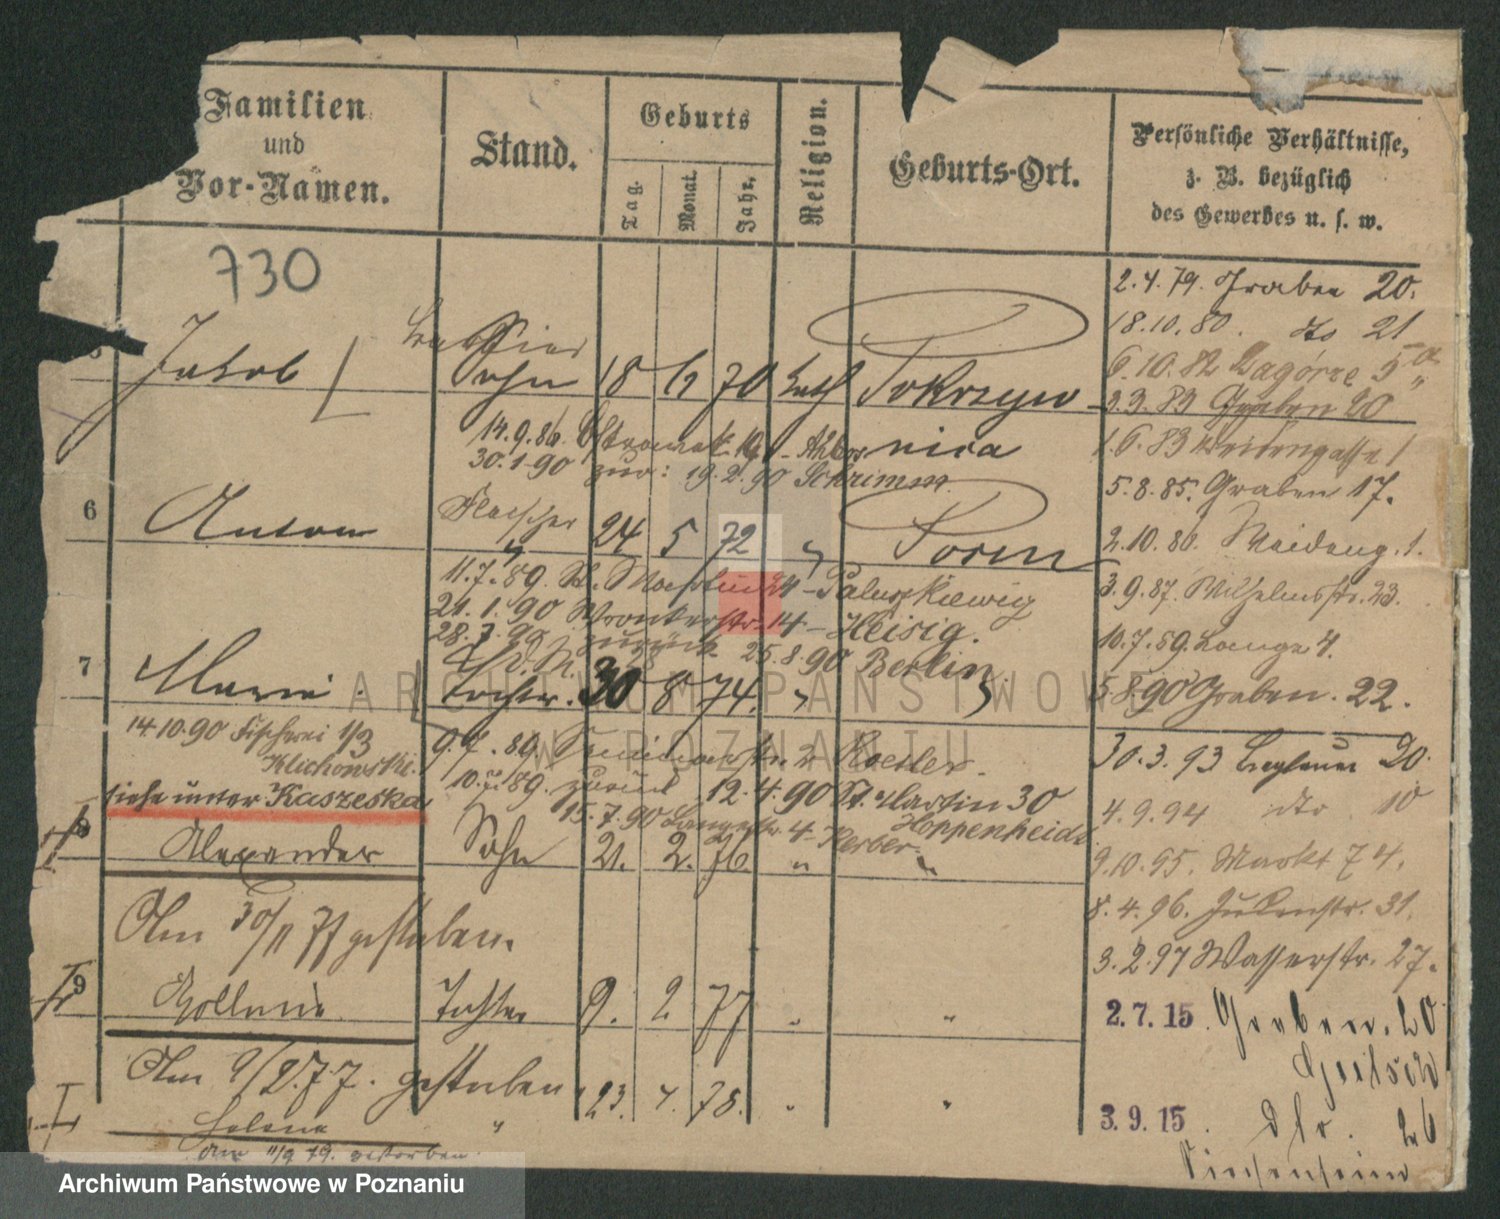 Familien
und
Vor-Namen.
Stand.
Geburts
Tag.
Monat.
Jahr,
Religion.
Geburts-Ort.
Persönliche Verhältnisse,
z. B. bezüglich
des Gewerbes u. s. w.
730
2.4.79. Graben 20.
18.10.80. dto 21
6.10.82 Zagórze 5a
Jakob
Sohn 18 70 kath Pokrzyw
2.3.83 Graben 20
14.9.86. nica
1.6.83 Weidengasse 1
30.1.90 zur: 19.2.90 Schrimm
5.8.85. Graben 17.
6 Anton Fleischer 24 5 72 " Posen
2.10.86. Weideng. 1.
11.7.89. St. Martin 24 - Paluszkiewicz
3.9.87. Wilhelmsstr. 23.
21.1.90 Wronkerstr. 14 - Heisig.
28.7.90 zurück 25.8.90 Berlin
10.7.89. Lange 4.
7 Marie Tochter. 30 8 74. "
5.8.90 Graben. 22.
14.10.90 Fischerei 1/3
Klichowski.
9.7.89. 2 Roesler.
30.3.93 20.
10.7.89. zurück 12.4.90 St. Martin 30
Hoppenheidt
siehe unter Kaszeska
15.7.90 Langestr. 4 - Kerber.
4.9.94 dto 10
8 Alexander Sohn 21. 2. 76. " "
9.10.95. Markt 74.
8.4.96. Judenstr. 31.
Am 30/11 77 gestorben.
3.2.97 Wasserstr. 27.
9 Tochter 9. 2 77 " "
2.7.15. Graben. 20
Am 9/2.77. gestorben
23. 4. 78. " "
3.9.15. dto. 26
Helena "
Am 11/9 79. gestorben.
ARCHIWUM PAŃSTWOWE
W POZNANIU
Archiwum Państwowe w Poznaniu